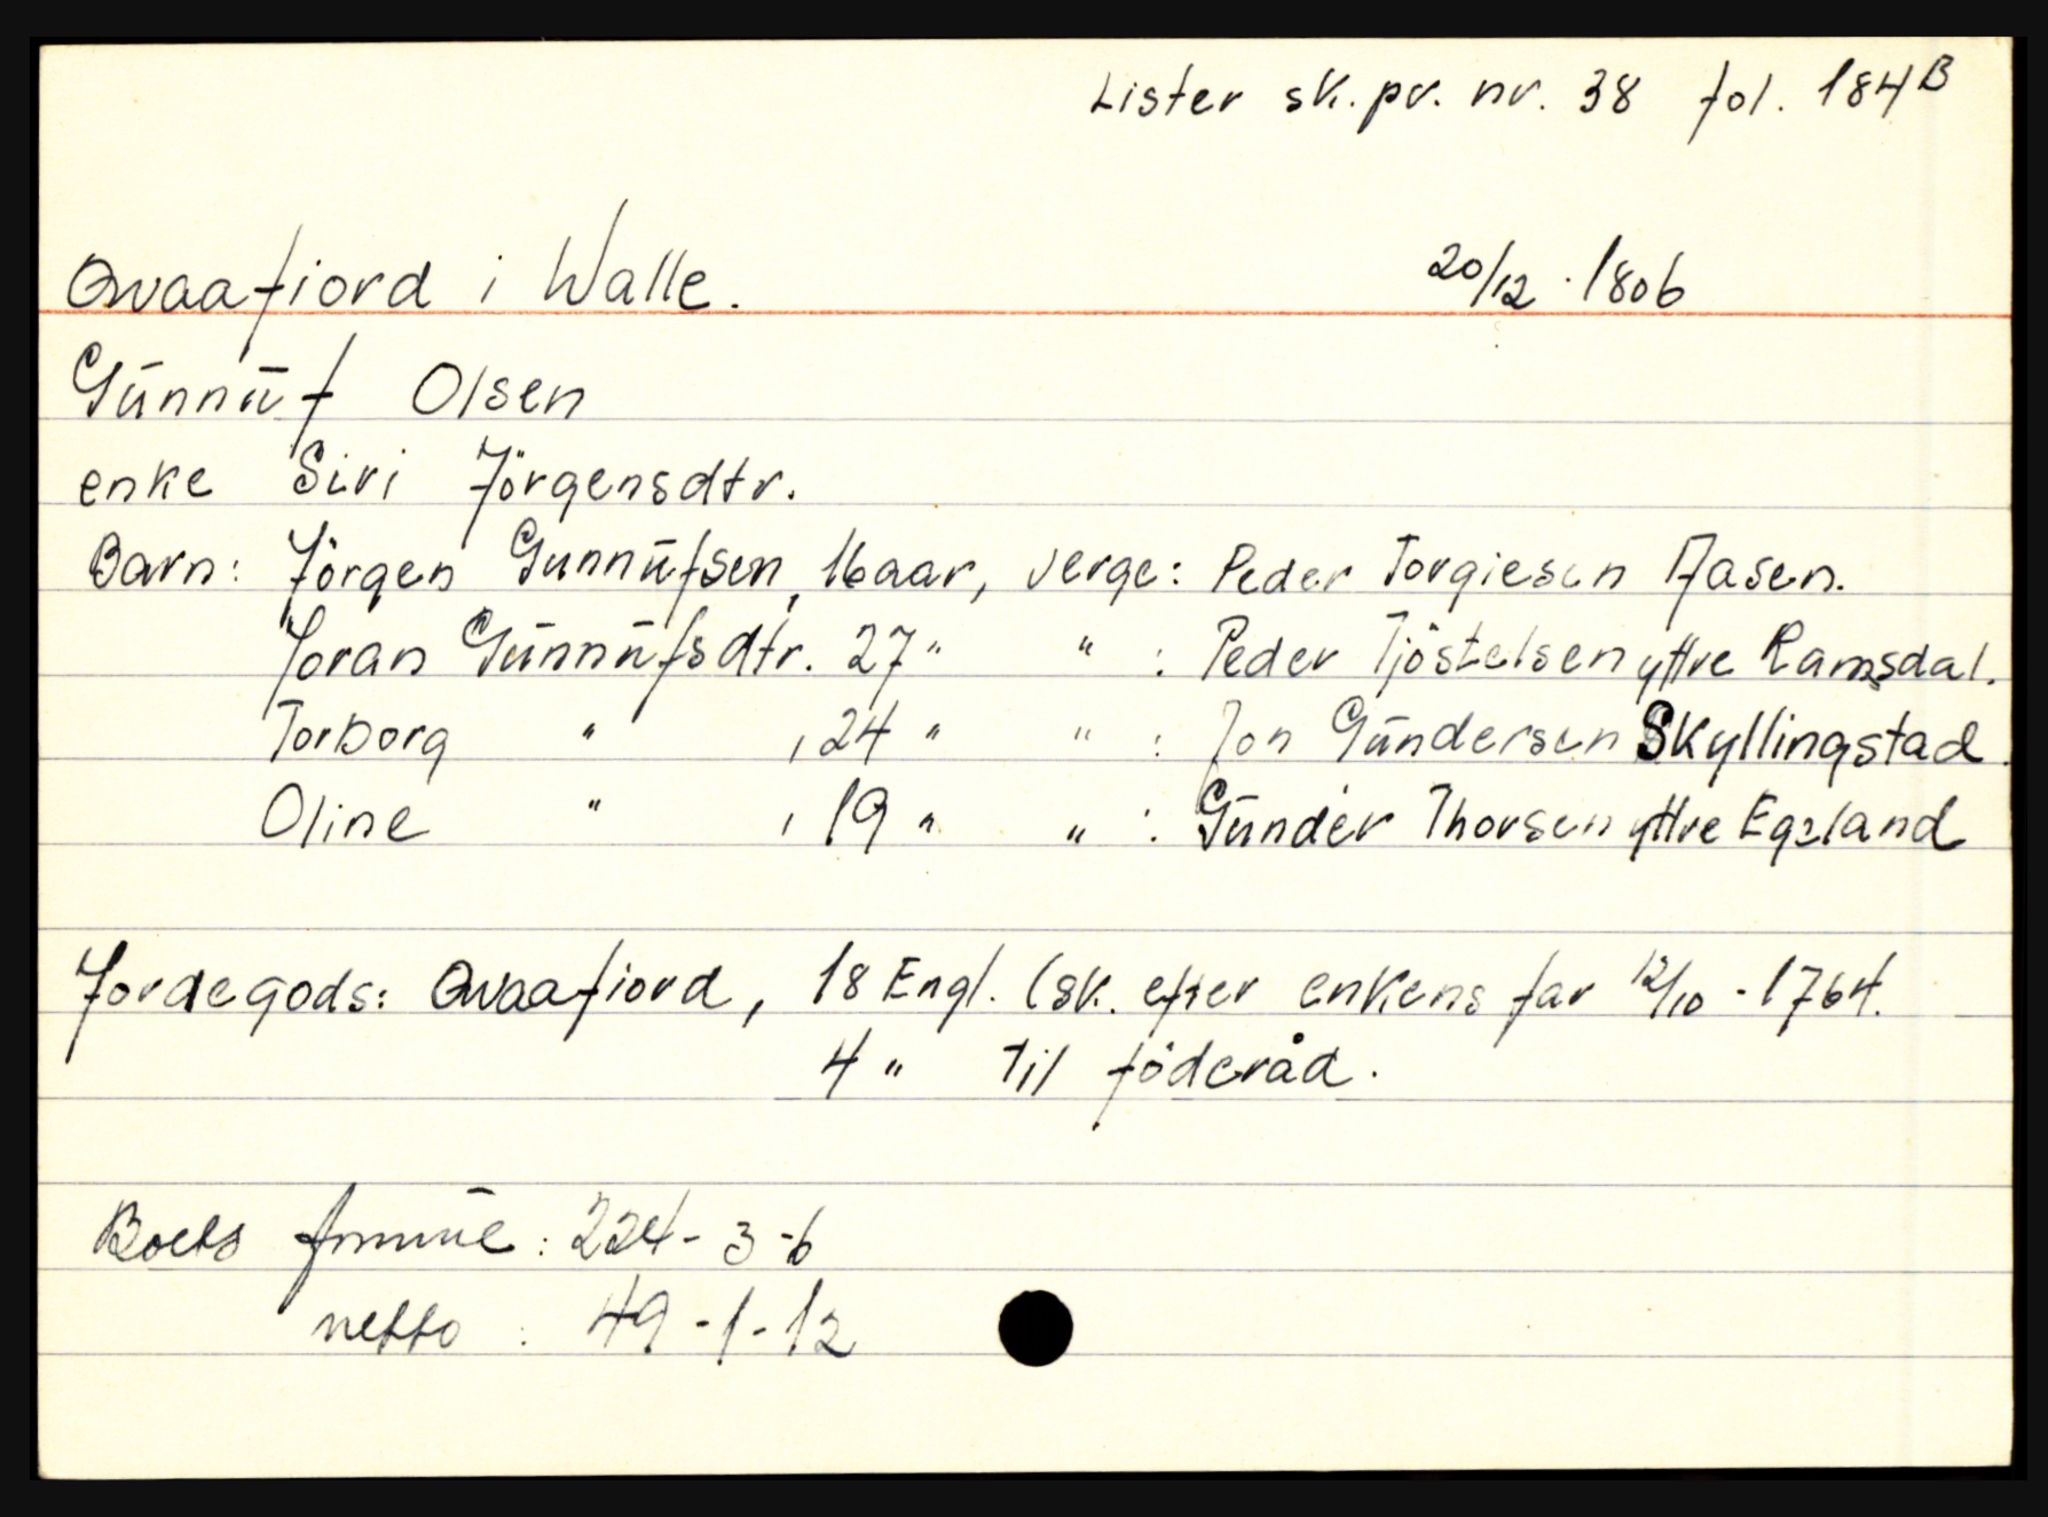 Lister sk. pr. nr. 38 fol. 184 B
Qvaafiord i Walle. 20/12 · 1806
Gūnnūf Olsen
enke Siri Jörgensdtr.
Barn: Jörgen Gunnūfsen, 16 aar, verge: Peder Torgiesen Aasen.
Joran Gūnnūfsdtr. 27 " " : Peder Tjöstelsen yttre Ramsdal.
Torborg " , 24 " " : Jon Gūndersen Skyllingstad.
Oline " , 19 " " : Gūnder Thorsen yttre Egeland
Jordegods: Qvaafiord, 18 Engl. (sk. efter enkens far 12/10 - 1764.
4 " til föderåd.
Boets : 224 - 3 - 6
netto : 49 - 1 - 12